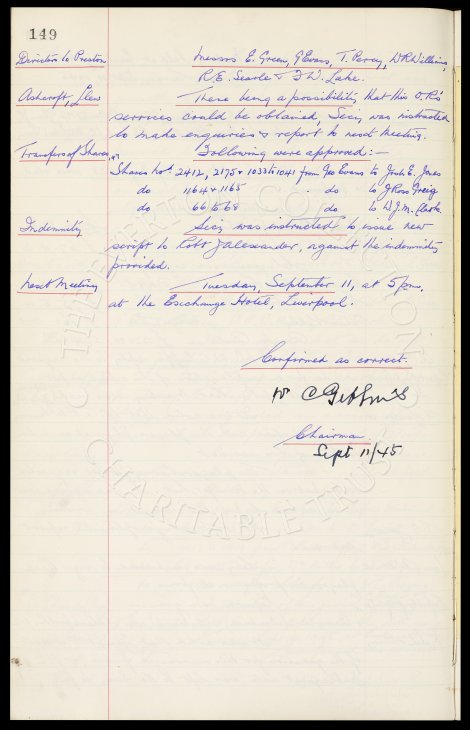 149
Directors to Preston Messrs E. Green, G Evans, T. Percy, W R Williams,
R. E. Searle & F. W. Lake.
Ashcroft, Llew There being a possibility that this O.R's
services could be obtained, Secy, was instructed
to make enquiries & report to next Meeting.
Transfer of Shares Following were approved:-
Shares nos. 2412, 2175 & 1033 to 1041 from Geo Evans to Josh E. Jones
do 1164 & 1165 - do to J Ross Greig
do 66 to 68 do to W.J.M. Clarke
Indemnity Secy was instructed to issue new
script to Robt J Alexander, against the indemnity
provided.
Next Meeting Tuesday, September 11, at 5 pm,
at the Exchange Hotel, Liverpool.
Confirmed as correct.
W C
Chairman.
Sept 11/45
THE EVERTON COLLECTION
CHARITABLE TRUST